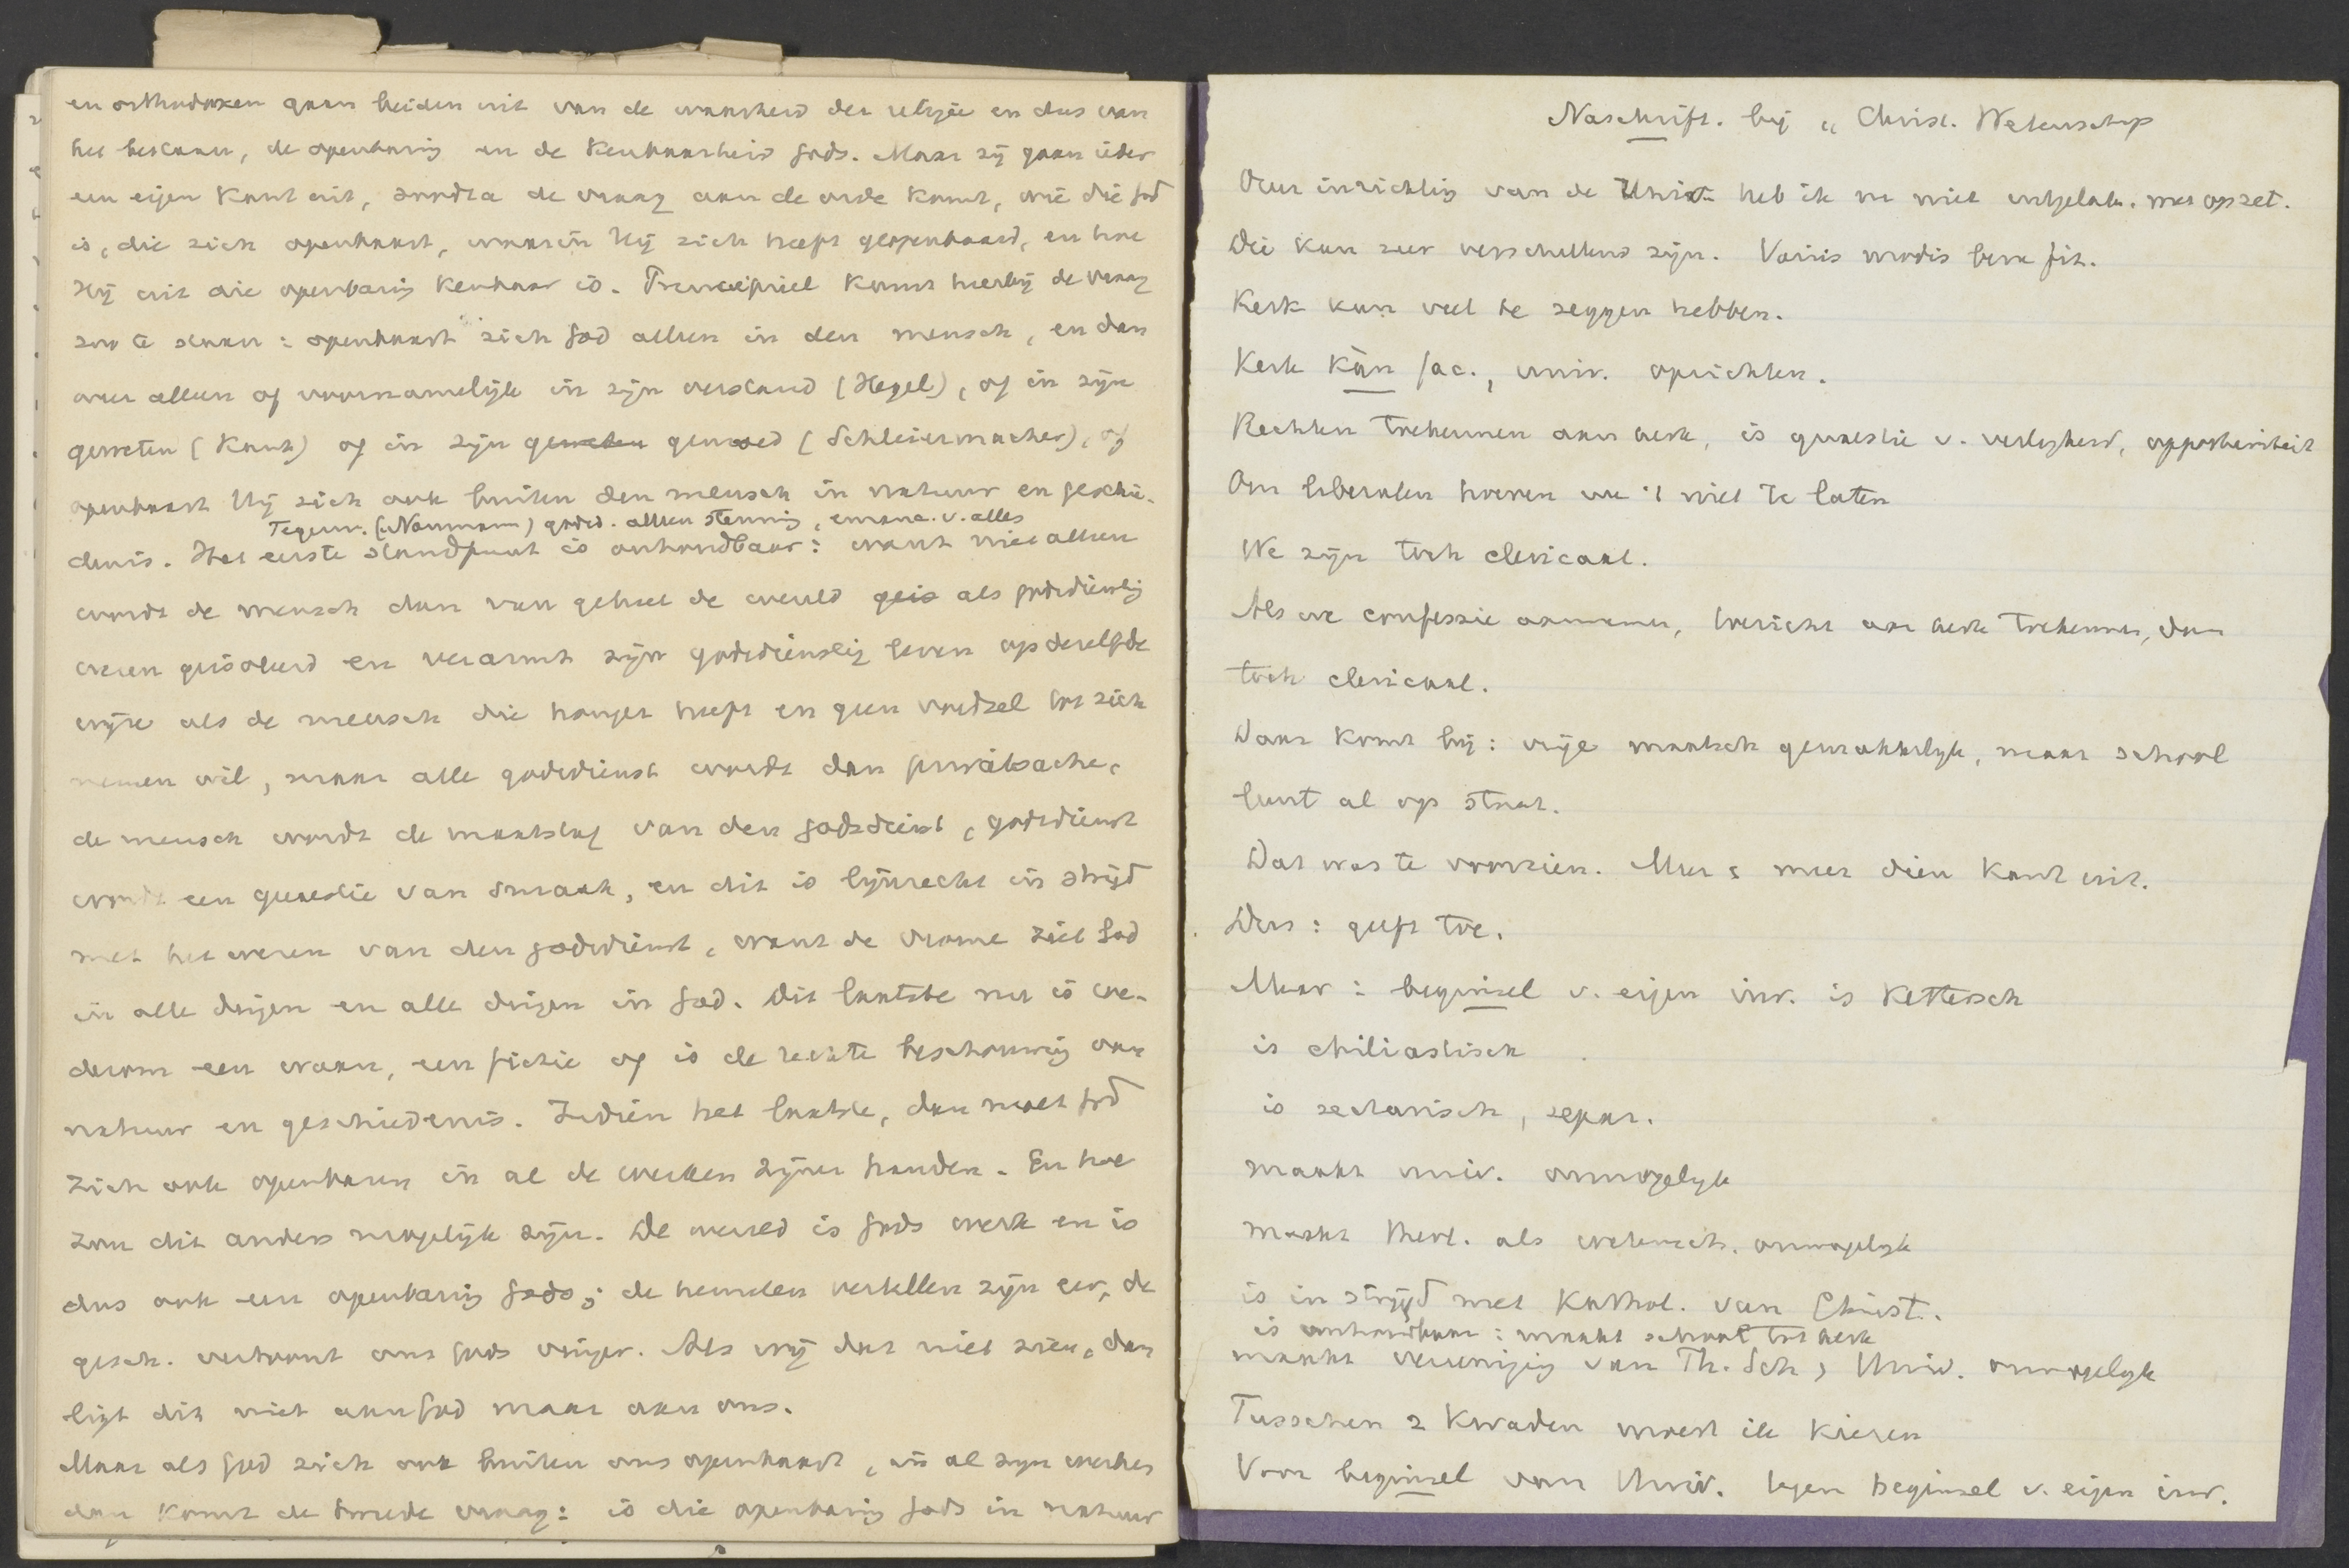 en orthodoxen gaan beiden uit van de waarheid der religie en dus van
het bestaan, de openbaring en de kenbaarheid Gods. Maar zij gaan ieder
een eigen kant uit, zoodra de vraag aan de orde komt, wie die God
is, die zich openbaart, waarin Hij zich heeft geopenbaard, en hoe
Hij uit die openbaring kenbaar is. Principieel komt hierbij de vraag
zoo te staan: openbaart zich God alleen in den mensch, en dan
weer alleen of voornamelijk in zijn verstand (Hegel), of in zijn
geweten (Kant) of in zijn geweten gemoed (Schleiermacher), of
openbaart Hij zich ook buiten den mensch in natuur en geschie-
Tegenw. (Naumann) godsd. alleen stemming, emanc. v. alles
denis. Het eerste standpunt is onhoudbaar: want niet alleen
wordt de mensch dan van geheel de wereld geis als godsdienstig
wezen geisoleerd en verarmt zijn godsdienstig leven op dezelfde
wijze als de mensch die honger heeft en geen voedsel tot zich
nemen wil, maar alle godsdienst wordt dan privatsache,
de mensch wordt de maatstaf van den godsdienst, godsdienst
wordt een quaestie van smaak, en dit is lijnrecht in strijd
met het wezen van den godsdienst, want de vrome ziet God
in alle dingen en alle dingen in God. Dit laatste nu is we-
derom een waan, een fictie of is de rechte beschouwing van
natuur en geschiedenis. Indien het laatste, dan moet God
zich ook openbaren in al de werken zijner handen. En hoe
zou dit anders mogelijk zijn. De wereld is Gods werk en is
dus ook een openbaring Gods; de hemelen vertellen zijn eer, de
gesch. vertoont ons Gods vinger. Als wij dat niet zien, dan
ligt dit niet aan God maar aan ons.
Maar als God zich ook buiten ons openbaart, in al zijn werken
dan komt de tweede vraag: is die openbaring Gods in natuur
Naschrift. bij „Christ. Wetenschap
Over inrichting van de Univ. heb ik me niet uitgelaten. met opzet.
Die kan zeer verschillend zijn. Variis modis bene fit.
Kerk kan veel te zeggen hebben.
Kerk kàn fac., univ. oprichten.
Rechten toekennen aan kerk, is quaestie v. veiligheid, opportuniteit
Om liberalen hoeven we 't niet te laten
We zijn toch clericaal.
Als we confessie aannemen, toezicht aan kerk toekennen, dan
toch clericaal.
Daar komt bij: vrije maatsch gemakkelijk, maar school
leunt al op staat.
Dat was te voorzien. Meer & meer dien kant uit.
Dus: geeft toe.
Maar: beginsel v. eigen inr. is kettersch
is chiliastisch
is sectarisch, separ.
maakt univ. onmogelijk
maakt theol. als wetensch. onmogelijk
is in strijd met Kathol. van Christ.
is onhoudbaar: maakt school tot kerk
maakt vereeniging van Th. Sch & Univ. onmogelijk
Tusschen 2 kwaden moest ik kiezen
Voor beginsel van Univ. tegen beginsel v. eigen inr.